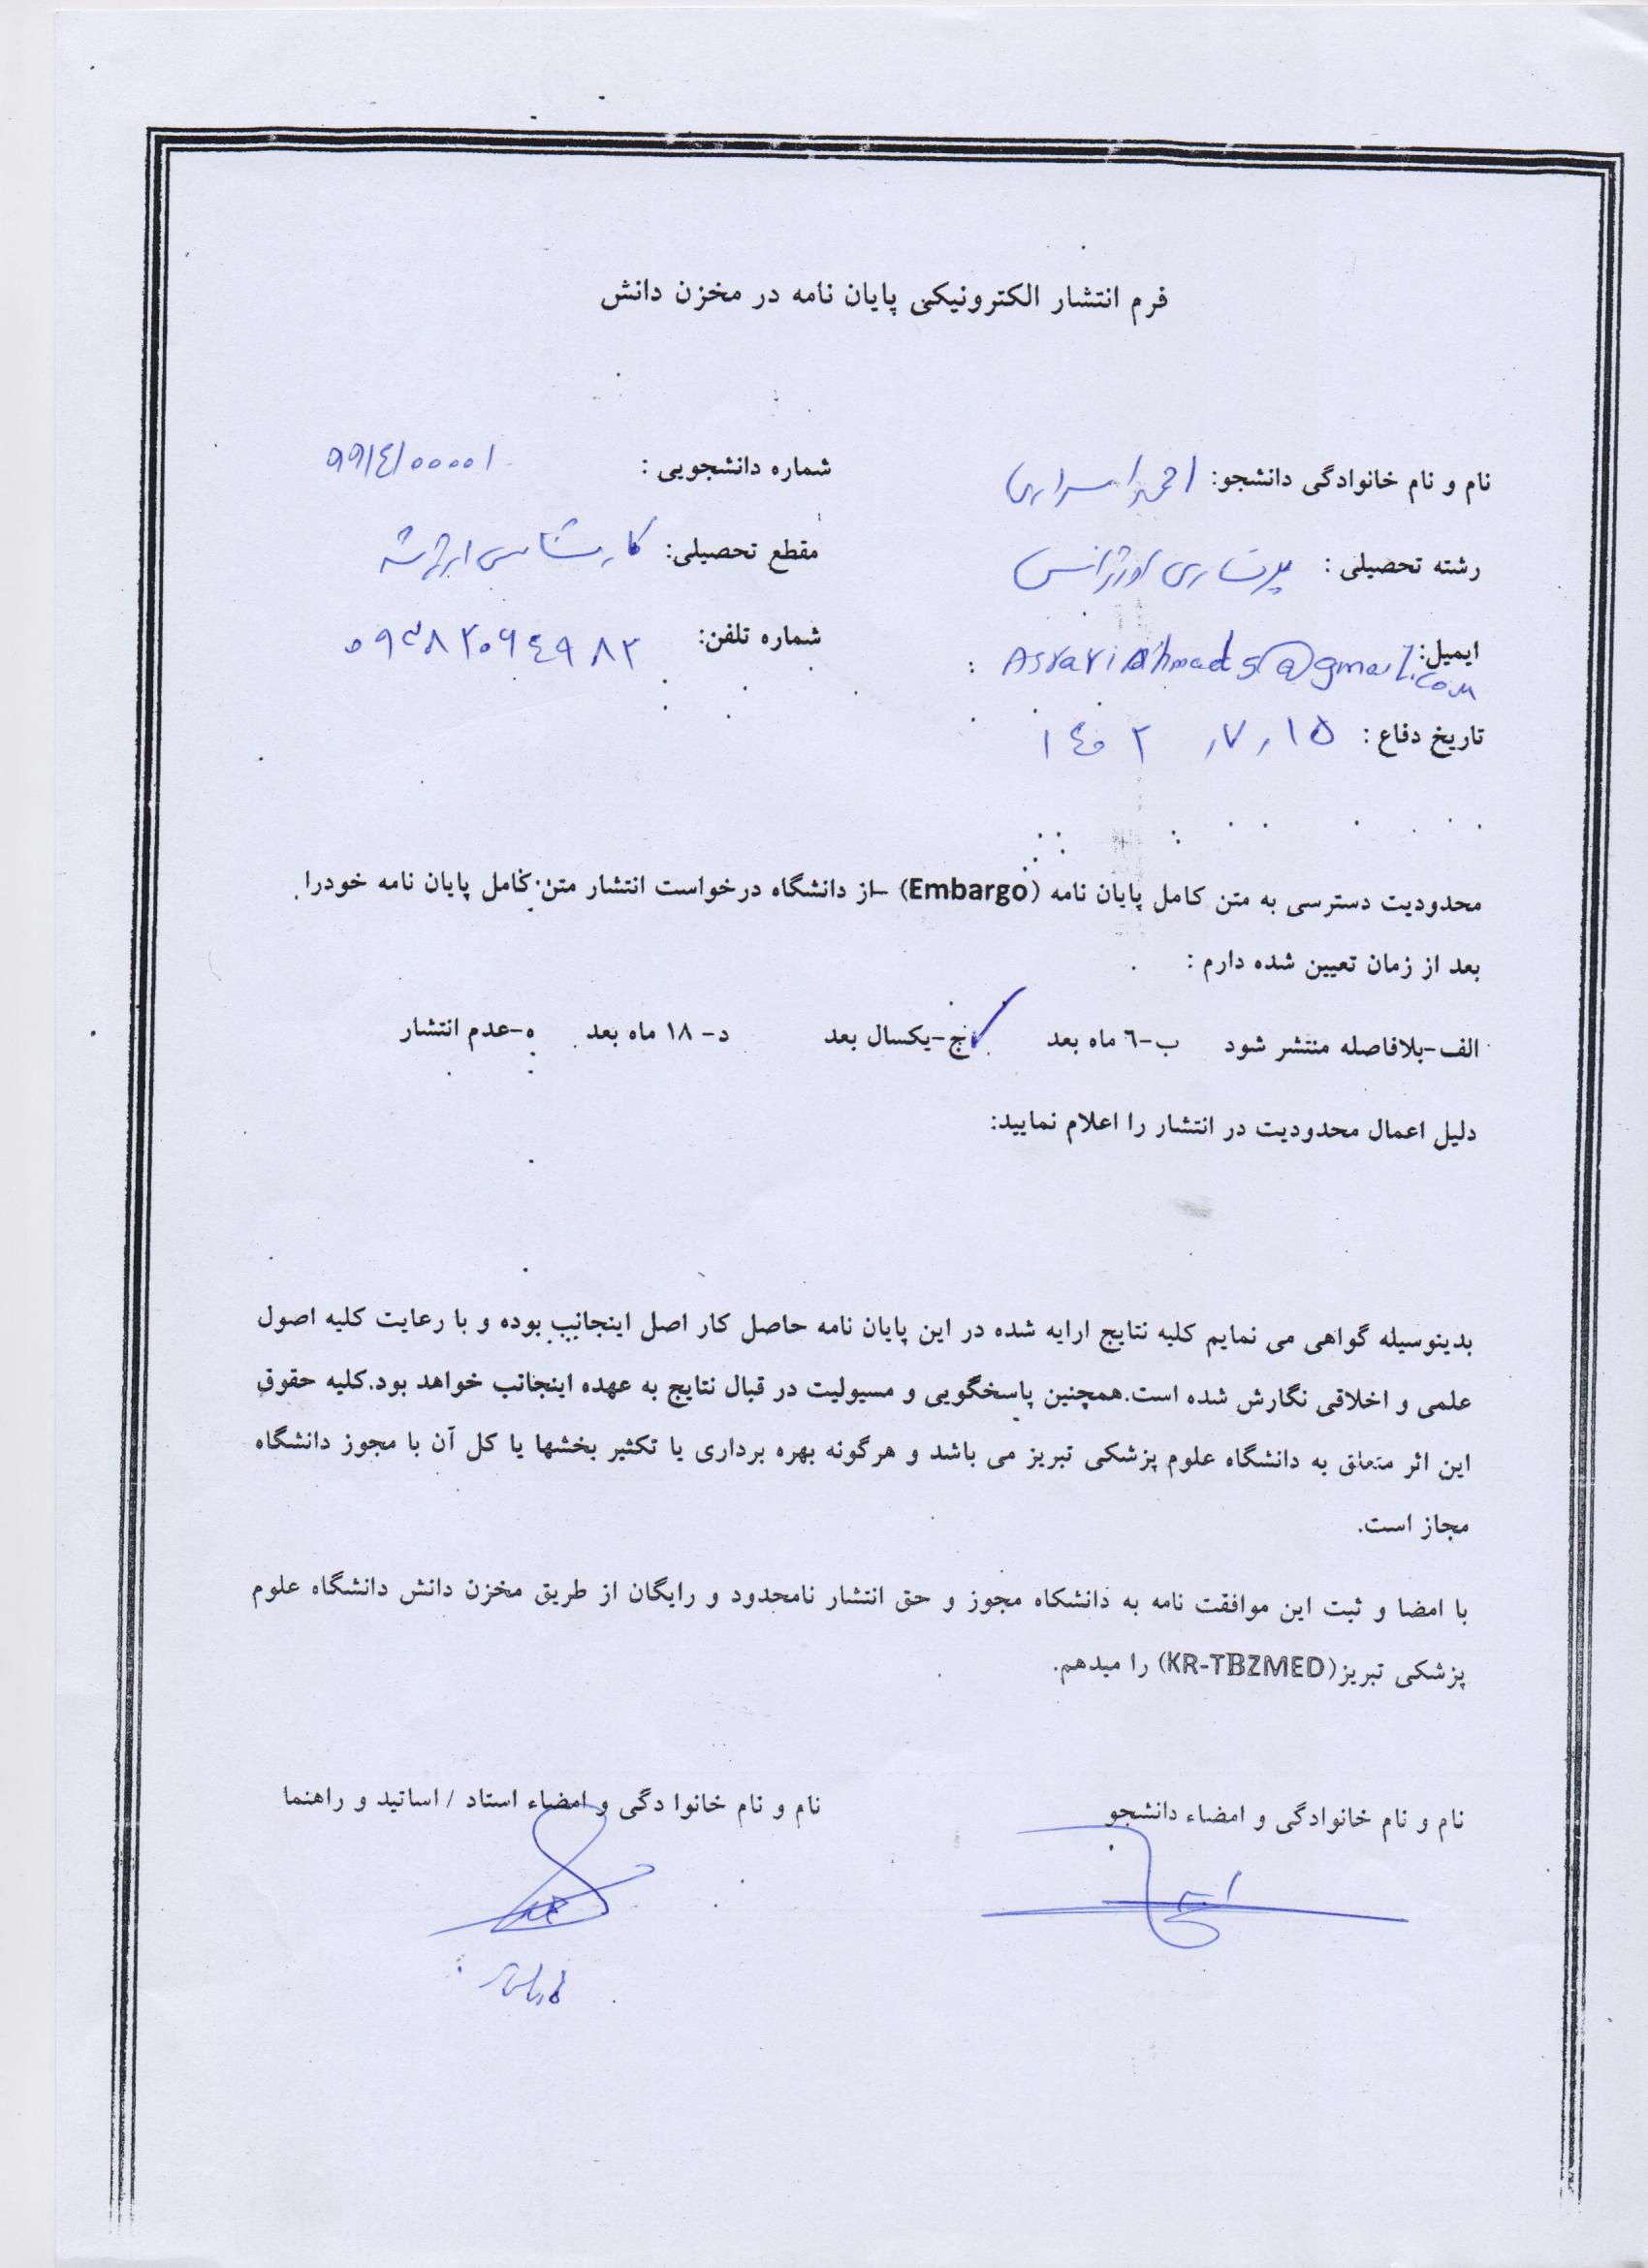 فرم انتشار الکترونیکی پایان نامه در مخزن دانش
نام و نام خانوادگی دانشجو: احمد اسراری شماره دانشجویی : ۹۹۱٤۱۰۰۰۰۱
رشته تحصیلی : پرستاری اورژانس مقطع تحصیلی: کارشناسی ارشد
ایمیل: AsrariAhmad5@gmail.com شماره تلفن: ۰۹۳۸۲۰۹٤۹۸۲
تاریخ دفاع : ۱۵ ,۷, ۱٤۰۲
محدودیت دسترسی به متن کامل پایان نامه (Embargo) –از دانشگاه درخواست انتشار متن کامل پایان نامه خودرا
بعد از زمان تعیین شده دارم :
الف-بلافاصله منتشر شود ب-٦ ماه بعد ✓ج-یکسال بعد د- ۱۸ ماه بعد ه-عدم انتشار
دلیل اعمال محدودیت در انتشار را اعلام نمایید:
بدینوسیله گواهی می نمایم کلیه نتایج ارایه شده در این پایان نامه حاصل کار اصل اینجانب بوده و با رعایت کلیه اصول
علمی و اخلاقی نگارش شده است.همچنین پاسخگویی و مسیولیت در قبال نتایج به عهده اینجانب خواهد بود.کلیه حقوق
این اثر متعلق به دانشگاه علوم پزشکی تبریز می باشد و هرگونه بهره برداری یا تکثیر بخشها یا کل آن با مجوز دانشگاه
مجاز است.
با امضا و ثبت این موافقت نامه به دانشکاه مجوز و حق انتشار نامحدود و رایگان از طریق مخزن دانش دانشگاه علوم
پزشکی تبریز(KR-TBZMED) را میدهم.
نام و نام خانوادگی و امضاء دانشجو نام و نام خانوا دگی و امضاء استاد / اساتید و راهنما